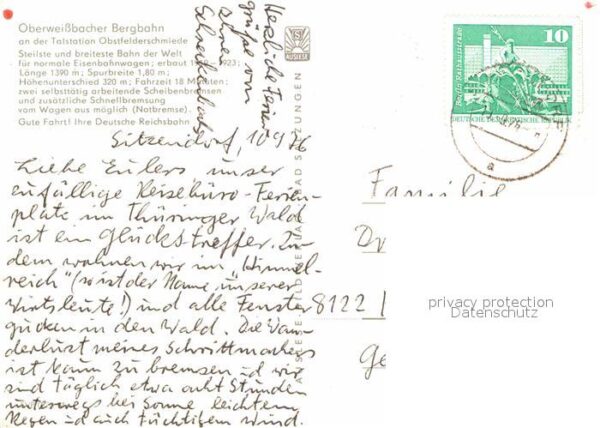 Oberweißbacher Bergbahn
an der Talstation Obstfelderschmiede
Steilste und breiteste Bahn der Welt
für normale Eisenbahnwagen; erbaut 1923;
Länge 1390 m; Spurbreite 1,80 m;
Höhenunterschied 320 m; Fahrzeit 18 Minuten;
zwei selbsttätig arbeitende Scheibenbremsen
und zusätzliche Schnellbremsung
vom Wagen aus möglich (Notbremse).
Gute Fahrt! Ihre Deutsche Reichsbahn
Herzliche Ferien
grüße von
Ihren
10
Berlin, Rathausstraße
DEUTSCHE DEMOKRATISCHE REPUBLIK
a
Sitzendorf, 10.9.76
Liebe Eulers, unser
zufällige Reisebüro-Ferien-
platz im Thüringer Wald
ist ein Glückstreffer. Zu-
dem wohnen wir im "Himmel-
reich" (so ist der Name unserer
Wirtsleute!) und alle Fenster
gucken in den Wald. Die Wan-
derlust meines Schrittmachers
ist kaum zu bremsen und wir
sind täglich etwa acht Stunden
unterwegs bei Sonne leichtem
Regen und auch tüchtigem Wind.
Familie
Dr
8122
Ge
privacy protection
Datenschutz